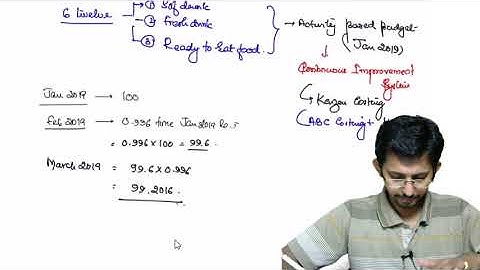 6 twelve → ① Soft drink
② fresh drink
③ Ready to eat food.
→ Activity based budget
(Jan 2019)
↓
Continuous Improvement
System
↳ Kaizen Costing
(ABC Costing +
Jan 2019 → 100
Feb 2019 → 0.996 time Jan 2019
= 0.996 x 100 = 99.6
March 2019 = 99.6 x 0.996
= 99.2016.